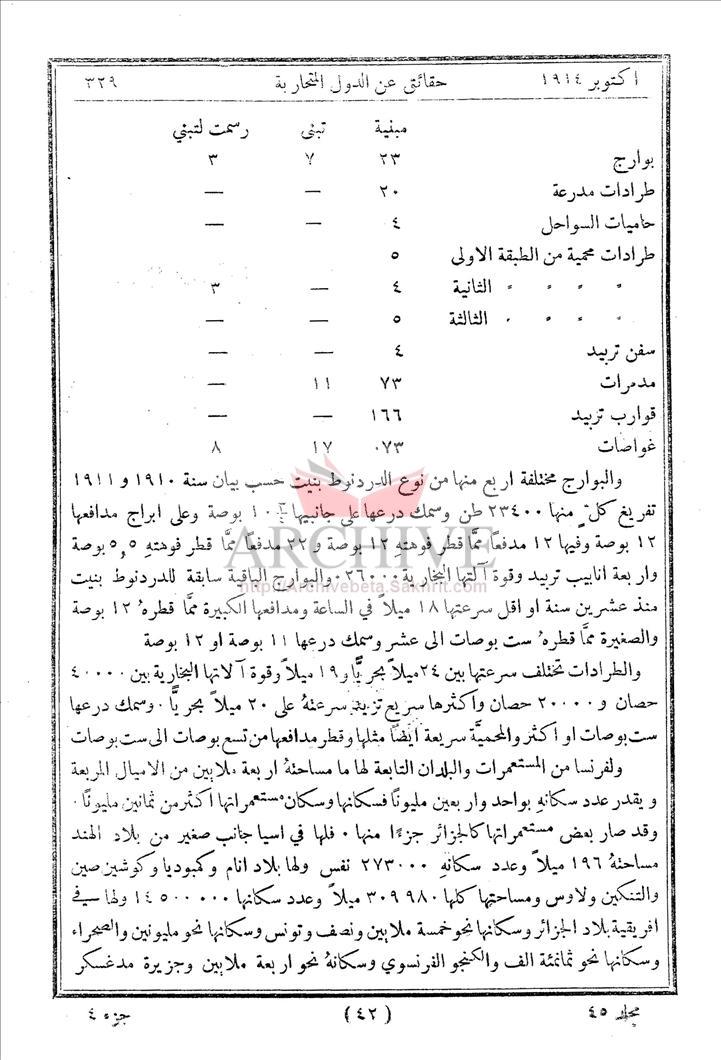 اكتوبر ١٩١٤ حقائق عن الدول المتحاربة ٣٢٩
مبنية تبنى رسمت لتبنى
بوارج ٢٣ ٧ ٣
طرادات مدرعة ٢٠ — —
حاميات السواحل ٤ — —
طرادات محمية من الطبقة الاولى ٥
" " " " الثانية ٤ — ٣
" " " " الثالثة ٥ — —
سفن تربيد ٤ — —
مدمرات ٧٣ ١١ —
قوارب تربيد ١٦٦ — —
غواصات ٠٧٣ ١٧ ٨
والبوارج مختلفة اربع منها من نوع الدردنوط بنيت حسب بيان سنة ١٩١٠ و ١٩١١
تفريغ كلّ منها ٢٣٤٠٠ طن وسمك درعها على جانبيها ١٠ بوصة وعلى ابراج مدافعها
١٢ بوصة وفيها ١٢ مدفعًا ممَّا قطر فوهتهِ ١٢ بوصة و ٢٢ مدفعًا ممَّا قطر فوهتهِ ٥٫٥ بوصة
واربعة انابيب تربيد وقوة آلتها البخارية ٣٦٠٠٠ والبوارج الباقية سابقة للدردنوط بنيت
منذ عشرين سنة او اقل سرعتها ١٨ ميلاً في الساعة ومدافعها الكبيرة ممَّا قطرهُ ١٢ بوصة
والصغيرة ممَّا قطرهُ ست بوصات الى عشر وسمك درعها ١١ بوصة او ١٢ بوصة
والطرادات تختلف سرعتها بين ٢٤ ميلاً بحريًّا و ١٩ ميلاً وقوة آلاتها البخارية بين ٤٠٠٠٠
حصان و ٢٠٠٠٠ حصان واكثرها سريع تزيد سرعتهُ على ٢٠ ميلاً بحريًّا ٠ وسمك درعها
ست بوصات او اكثر والمحميَّة سريعة ايضًا مثلها وقطر مدافعها من تسع بوصات الى ست بوصات
ولفرنسا من المستعمرات والبلدان التابعة لها ما مساحتهُ اربعة ملايين من الاميال المربعة
ويقدر عدد سكانهِ بواحد واربعين مليونًا فسكانها وسكان مستعمراتها اكثر من ثمانين مليونًا ٠
وقد صار بعض مستعمراتها كالجزائر جزءًا منها ٠ فلها في اسيا جانب صغير من بلاد الهند
مساحتهُ ١٩٦ ميلاً وعدد سكانهِ ٢٧٣٠٠٠ نفس ولها بلاد انام وكمبوديا وكوشين صين
والتنكين ولاوس ومساحتها كلها ٣٠٩٩٨٠ ميلاً وعدد سكانها ١٤٥٠٠٠٠٠ ولها في
افريقية بلاد الجزائر وسكانها نحو خمسة ملايين ونصف وتونس وسكانها نحو مليونين والصحراء
وسكانها نحو ثمانمئة الف والكنجو الفرنسوي وسكانهُ نحو اربعة ملايين وجزيرة مدغسكر
مجلد ٤٥ (٤٢) جزء ٤
ARCHIVE
http://Archivebeta.Sakhrit.com